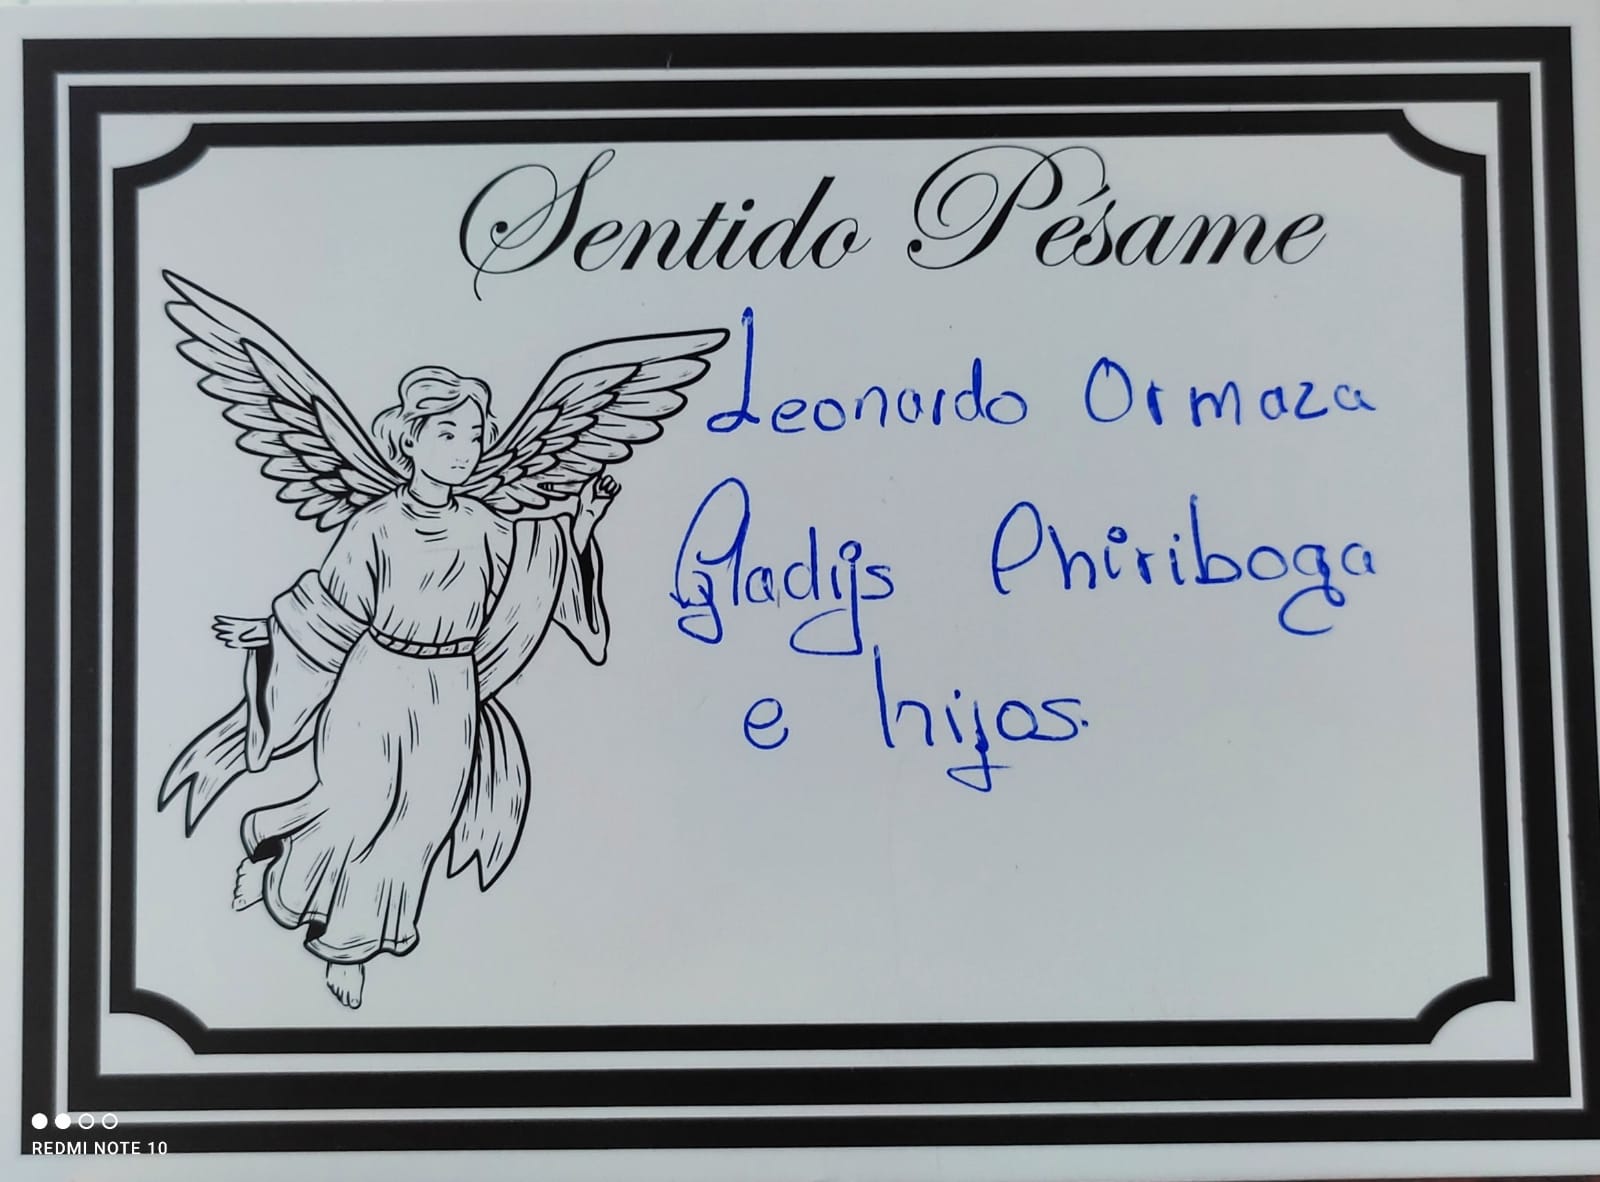 Sentido Pésame
Leonardo Ormaza
Gladys Chiriboga
e hijos.
REDMI NOTE 10